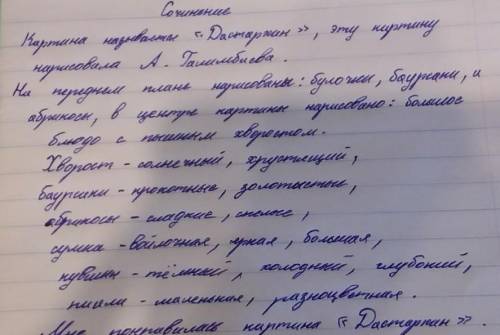 Сочинение
Картина называеты «Дастархан», эту картину
нарисовала А. Галимбаева.
На переднем плане нарисованы: булочки, баурсаки, и
абрикосы, в центре картины нарисовано: большое
блюдо с пышным хворостом.
Хворост - солнечный, хрустящий,
баурсаки - крохотные, золотыстые,
абрикосы - сладкие, спелые,
сумка - войлочная, яркая, большая,
кувшины - тёмный, холодный, глубокий,
пиала - маленькая, разноцветная.
Мне понравилась картина «Дастархан».